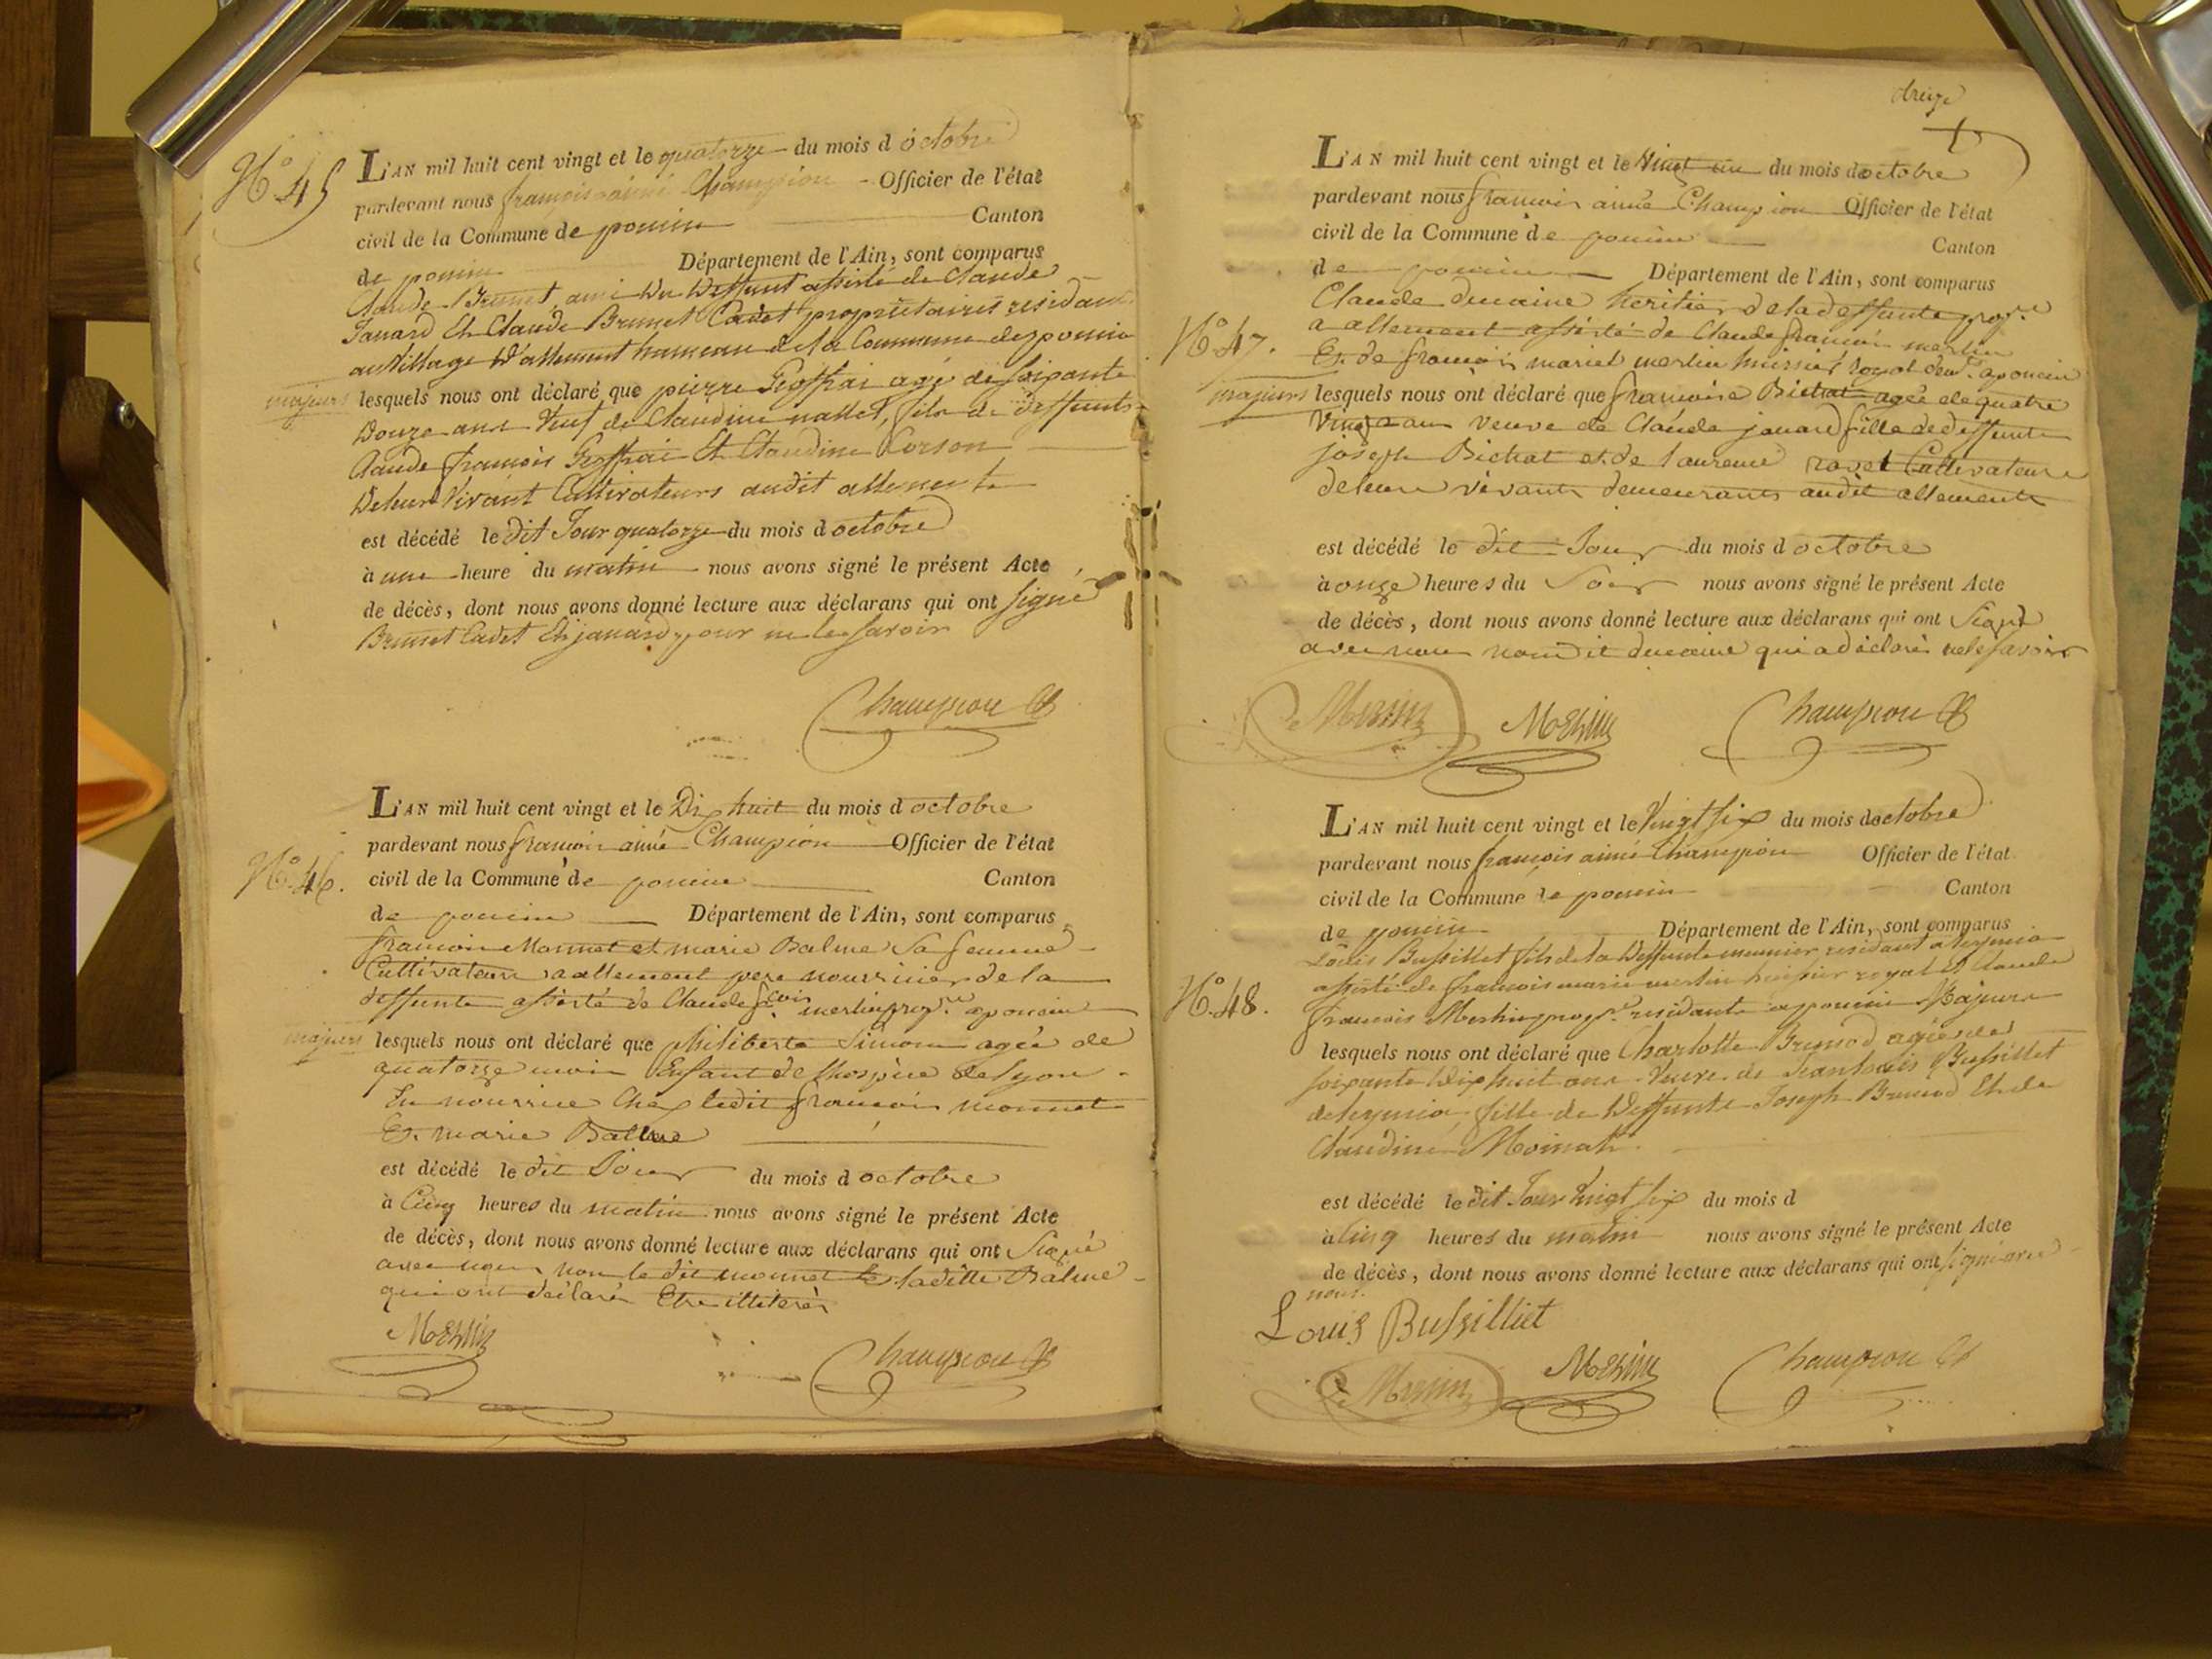 N.° 45
L'AN mil huit cent vingt et le quatorze du mois d octobre
pardevant nous françois aimé Champion Officier de l'état
civil de la Commune de poncin Canton
de poncin Département de l'Ain, sont comparus
Claude Brunet ami du deffunt assisté de Claude
Janard Et Claude Brunet Cadet propriétaires résidant
au Village d'allement hameau de la Commune de poncin
majeurs lesquels nous ont déclaré que pierre Geoffrai agé de soixante
douze ans Veuf de Claudine nallet, fils de deffunts
Claude françois Geoffrai Et Claudine Corson
de leur Vivant Cultivateurs audit allement
est décédé le dit Jour quatorze du mois d octobre
à une heure du matin nous avons signé le présent Acte
de décès, dont nous avons donné lecture aux déclarans qui ont signé
Brunet Cadet Et janard pour ne le savoir
Champion
N.° 46.
L'AN mil huit cent vingt et le Dix huit du mois d octobre
pardevant nous francois aimé Champion Officier de l'état
civil de la Commune de poncin Canton
de poncin Département de l'Ain, sont comparus
francois Monnet et marie Balme Sa femme
Cultivateurs a allement pere nourricier de la
deffunte assisté de Claude fcois merlin prop.re a poncin
majeurs lesquels nous ont déclaré que philiberte Simon agée de
quatorze mois Enfant de lhospice de Lyon
En nourrice Chez ledit francois monnet
Et marie Balme
est décédé le dit Jour du mois d octobre
à Cinq heures du matin nous avons signé le présent Acte
de décès, dont nous avons donné lecture aux déclarans qui ont Signé
avec nous non le dit monnet Et ladite Balme
qui ont déclaré Etre illiterés
Merlin
Champion
treize
L'AN mil huit cent vingt et le Vingt un du mois d octobre
pardevant nous francois aimé Champion Officier de l'état
civil de la Commune de poncin Canton
de poncin Département de l'Ain, sont comparus
N.° 47.
Claude ducaine heritier de la deffunte prop.re
a allement assisté de Claude francois merlin
Et de francois mariel merlin huissier royal dem.t a poncin
majeurs lesquels nous ont déclaré que francoise Bichat agée de quatre
Vingt ans veuve de Claude janard fille de deffunts
joseph Bichat et de Laurence ravet Cultivateurs
de leurs vivants demeurants audit allement
est décédé le dit Jour du mois d octobre
à onze heures du Soir nous avons signé le présent Acte
de décès, dont nous avons donné lecture aux déclarans qui ont Signé
avec nous non dit ducaine qui a déclaré ne le savoir
Merlin Merlin Champion
L'AN mil huit cent vingt et le Vingt six du mois d octobre
pardevant nous francois aimé Champion Officier de l'état
civil de la Commune de poncin Canton
de poncin Département de l'Ain, sont comparus
N.° 48.
Louis Bussillet fils de la deffunte meunier résidant a leymia
assisté de francois marie merlin huissier royal et Claude
francois Merlin prop.re residants a poncin Majeurs
lesquels nous ont déclaré que Charlotte Brunod agée de
soixante dix huit ans Veuve de Jean Louis Bussillet
de leymia, fille de deffunts Joseph Brunod Et de
Claudine Moinat
est décédé le dit Jour Vingt six du mois d
à Cinq heures du matin nous avons signé le présent Acte
de décès, dont nous avons donné lecture aux déclarans qui ont signé avec
nous.
Louis Bussilliet
Merlin Merlin Champion